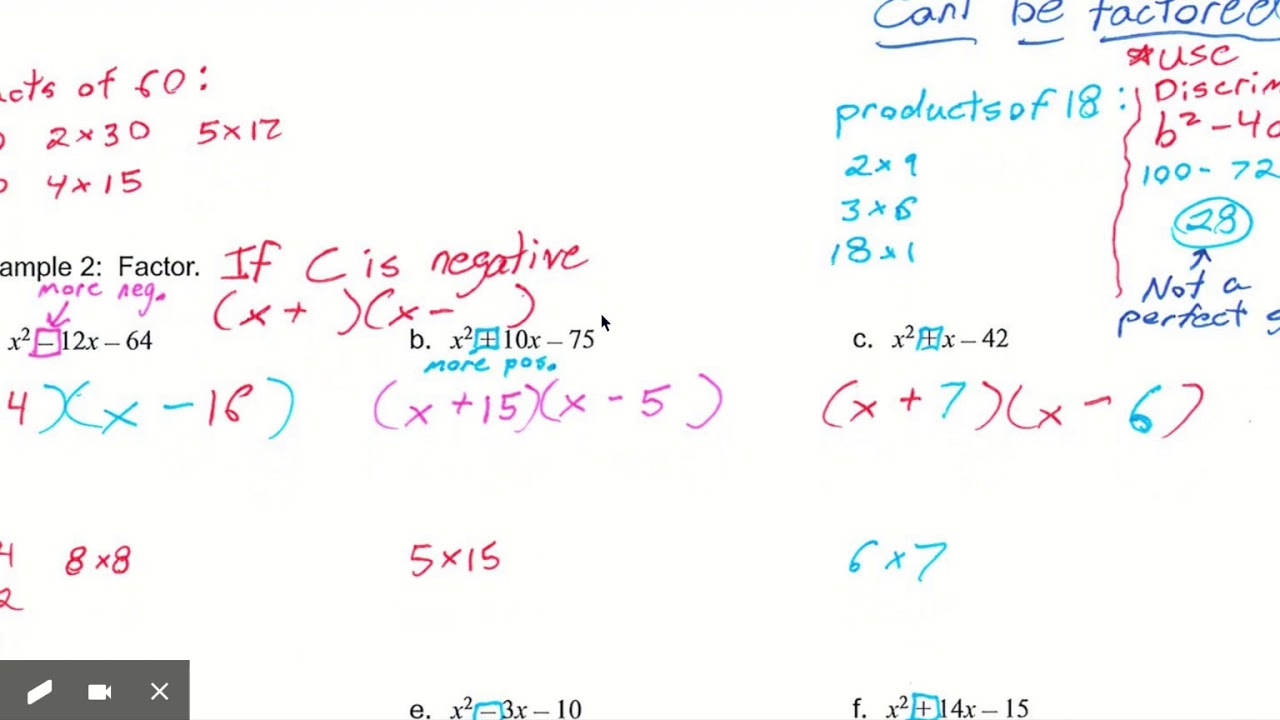 Can't be factored
products of 60:
2 × 30 5 × 12
4 × 15
products of 18:
2 × 9
3 × 6
18 × 1
*use
Discrim
b² - 4a
100 - 72
28
Not a
perfect s
ample 2: Factor. If C is negative
(x + )(x - )
more neg.
x² – 12x – 64
4)(x - 16)
8 × 8
b. x² + 10x – 75
more pos.
(x + 15)(x - 5)
5 × 15
c. x² + x – 42
(x + 7)(x - 6)
6 × 7
e. x² – 3x – 10
f. x² + 14x – 15